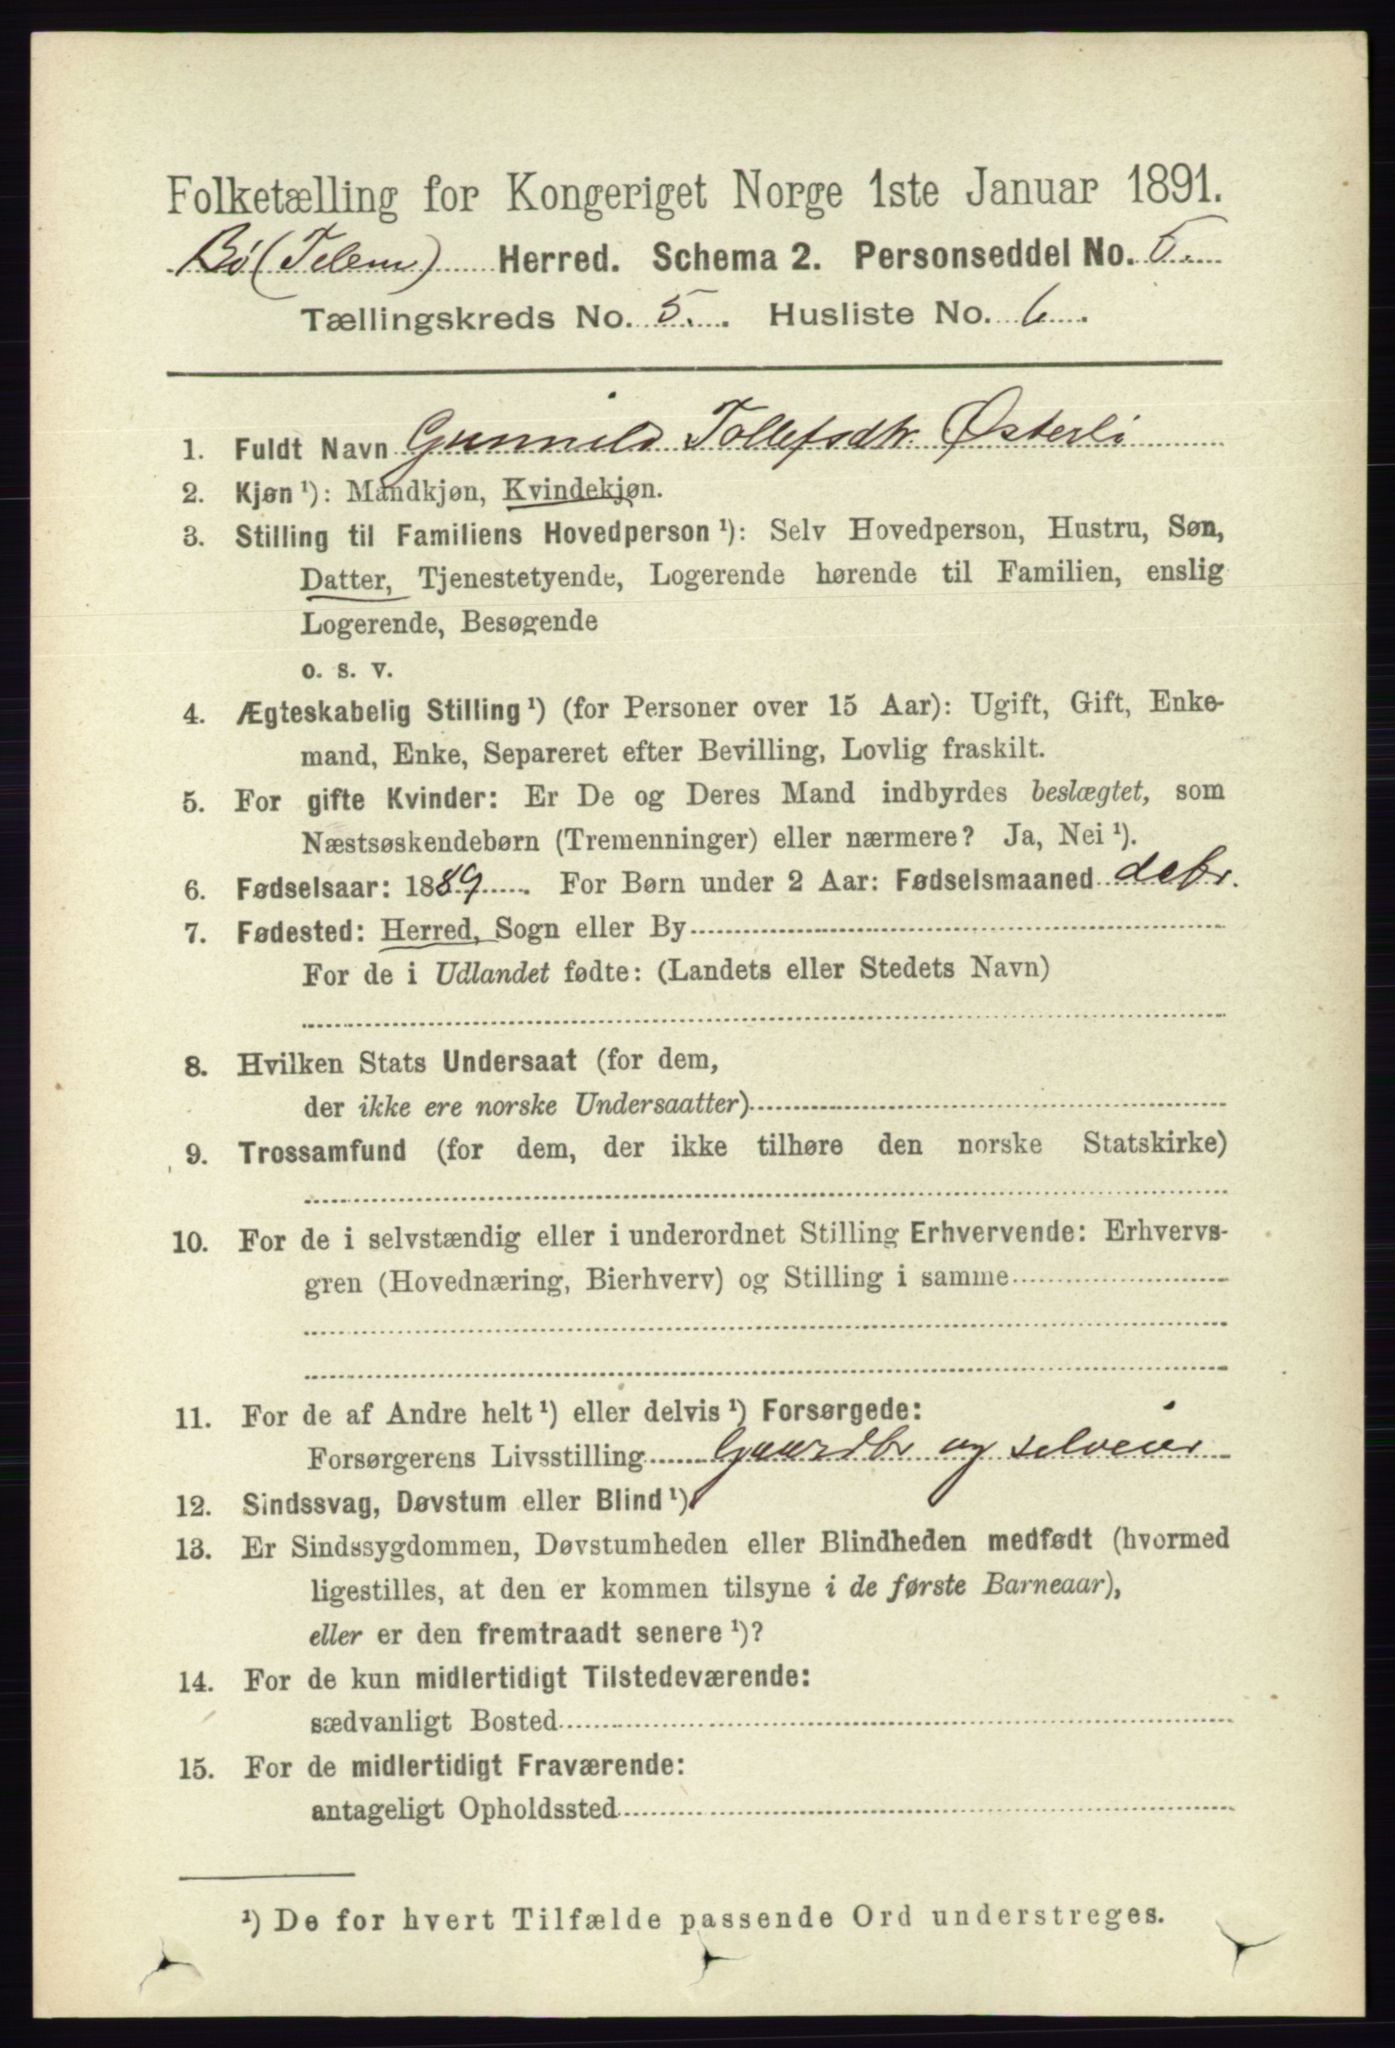 Folketælling for Kongeriget Norge 1ste Januar 1891.
Bø (Telem) Herred. Schema 2. Personseddel No. 5.
Tællingskreds No. 5. Husliste No. 6.
1. Fuldt Navn Gunnild Tollefsdtr. Østerli
2. Kjøn ¹): Mandkjøn, Kvindekjøn.
3. Stilling til Familiens Hovedperson ¹): Selv Hovedperson, Hustru, Søn,
Datter, Tjenestetyende, Logerende hørende til Familien, enslig
Logerende, Besøgende
o. s. v.
4. Ægteskabelig Stilling ¹) (for Personer over 15 Aar): Ugift, Gift, Enke-
mand, Enke, Separeret efter Bevilling, Lovlig fraskilt.
5. For gifte Kvinder: Er De og Deres Mand indbyrdes beslægtet, som
Næstsøskendebørn (Tremenninger) eller nærmere? Ja, Nei ¹).
6. Fødselsaar: 1889. For Børn under 2 Aar: Fødselsmaaned debr.
7. Fødested: Herred, Sogn eller By
For de i Udlandet fødte: (Landets eller Stedets Navn)
8. Hvilken Stats Undersaat (for dem,
der ikke ere norske Undersaatter)
9. Trossamfund (for dem, der ikke tilhøre den norske Statskirke)
10. For de i selvstændig eller i underordnet Stilling Erhvervende: Erhvervs-
gren (Hovednæring, Bierhverv) og Stilling i samme
11. For de af Andre helt ¹) eller delvis ¹) Forsørgede:
Forsørgerens Livsstilling Gaardbr og selveier
12. Sindssvag, Døvstum eller Blind ¹)
13. Er Sindssygdommen, Døvstumheden eller Blindheden medfødt (hvormed
ligestilles, at den er kommen tilsyne i de første Barneaar),
eller er den fremtraadt senere ¹)?
14. For de kun midlertidigt Tilstedeværende:
sædvanligt Bosted
15. For de midlertidigt Fraværende:
antageligt Opholdssted
¹) De for hvert Tilfælde passende Ord understreges.